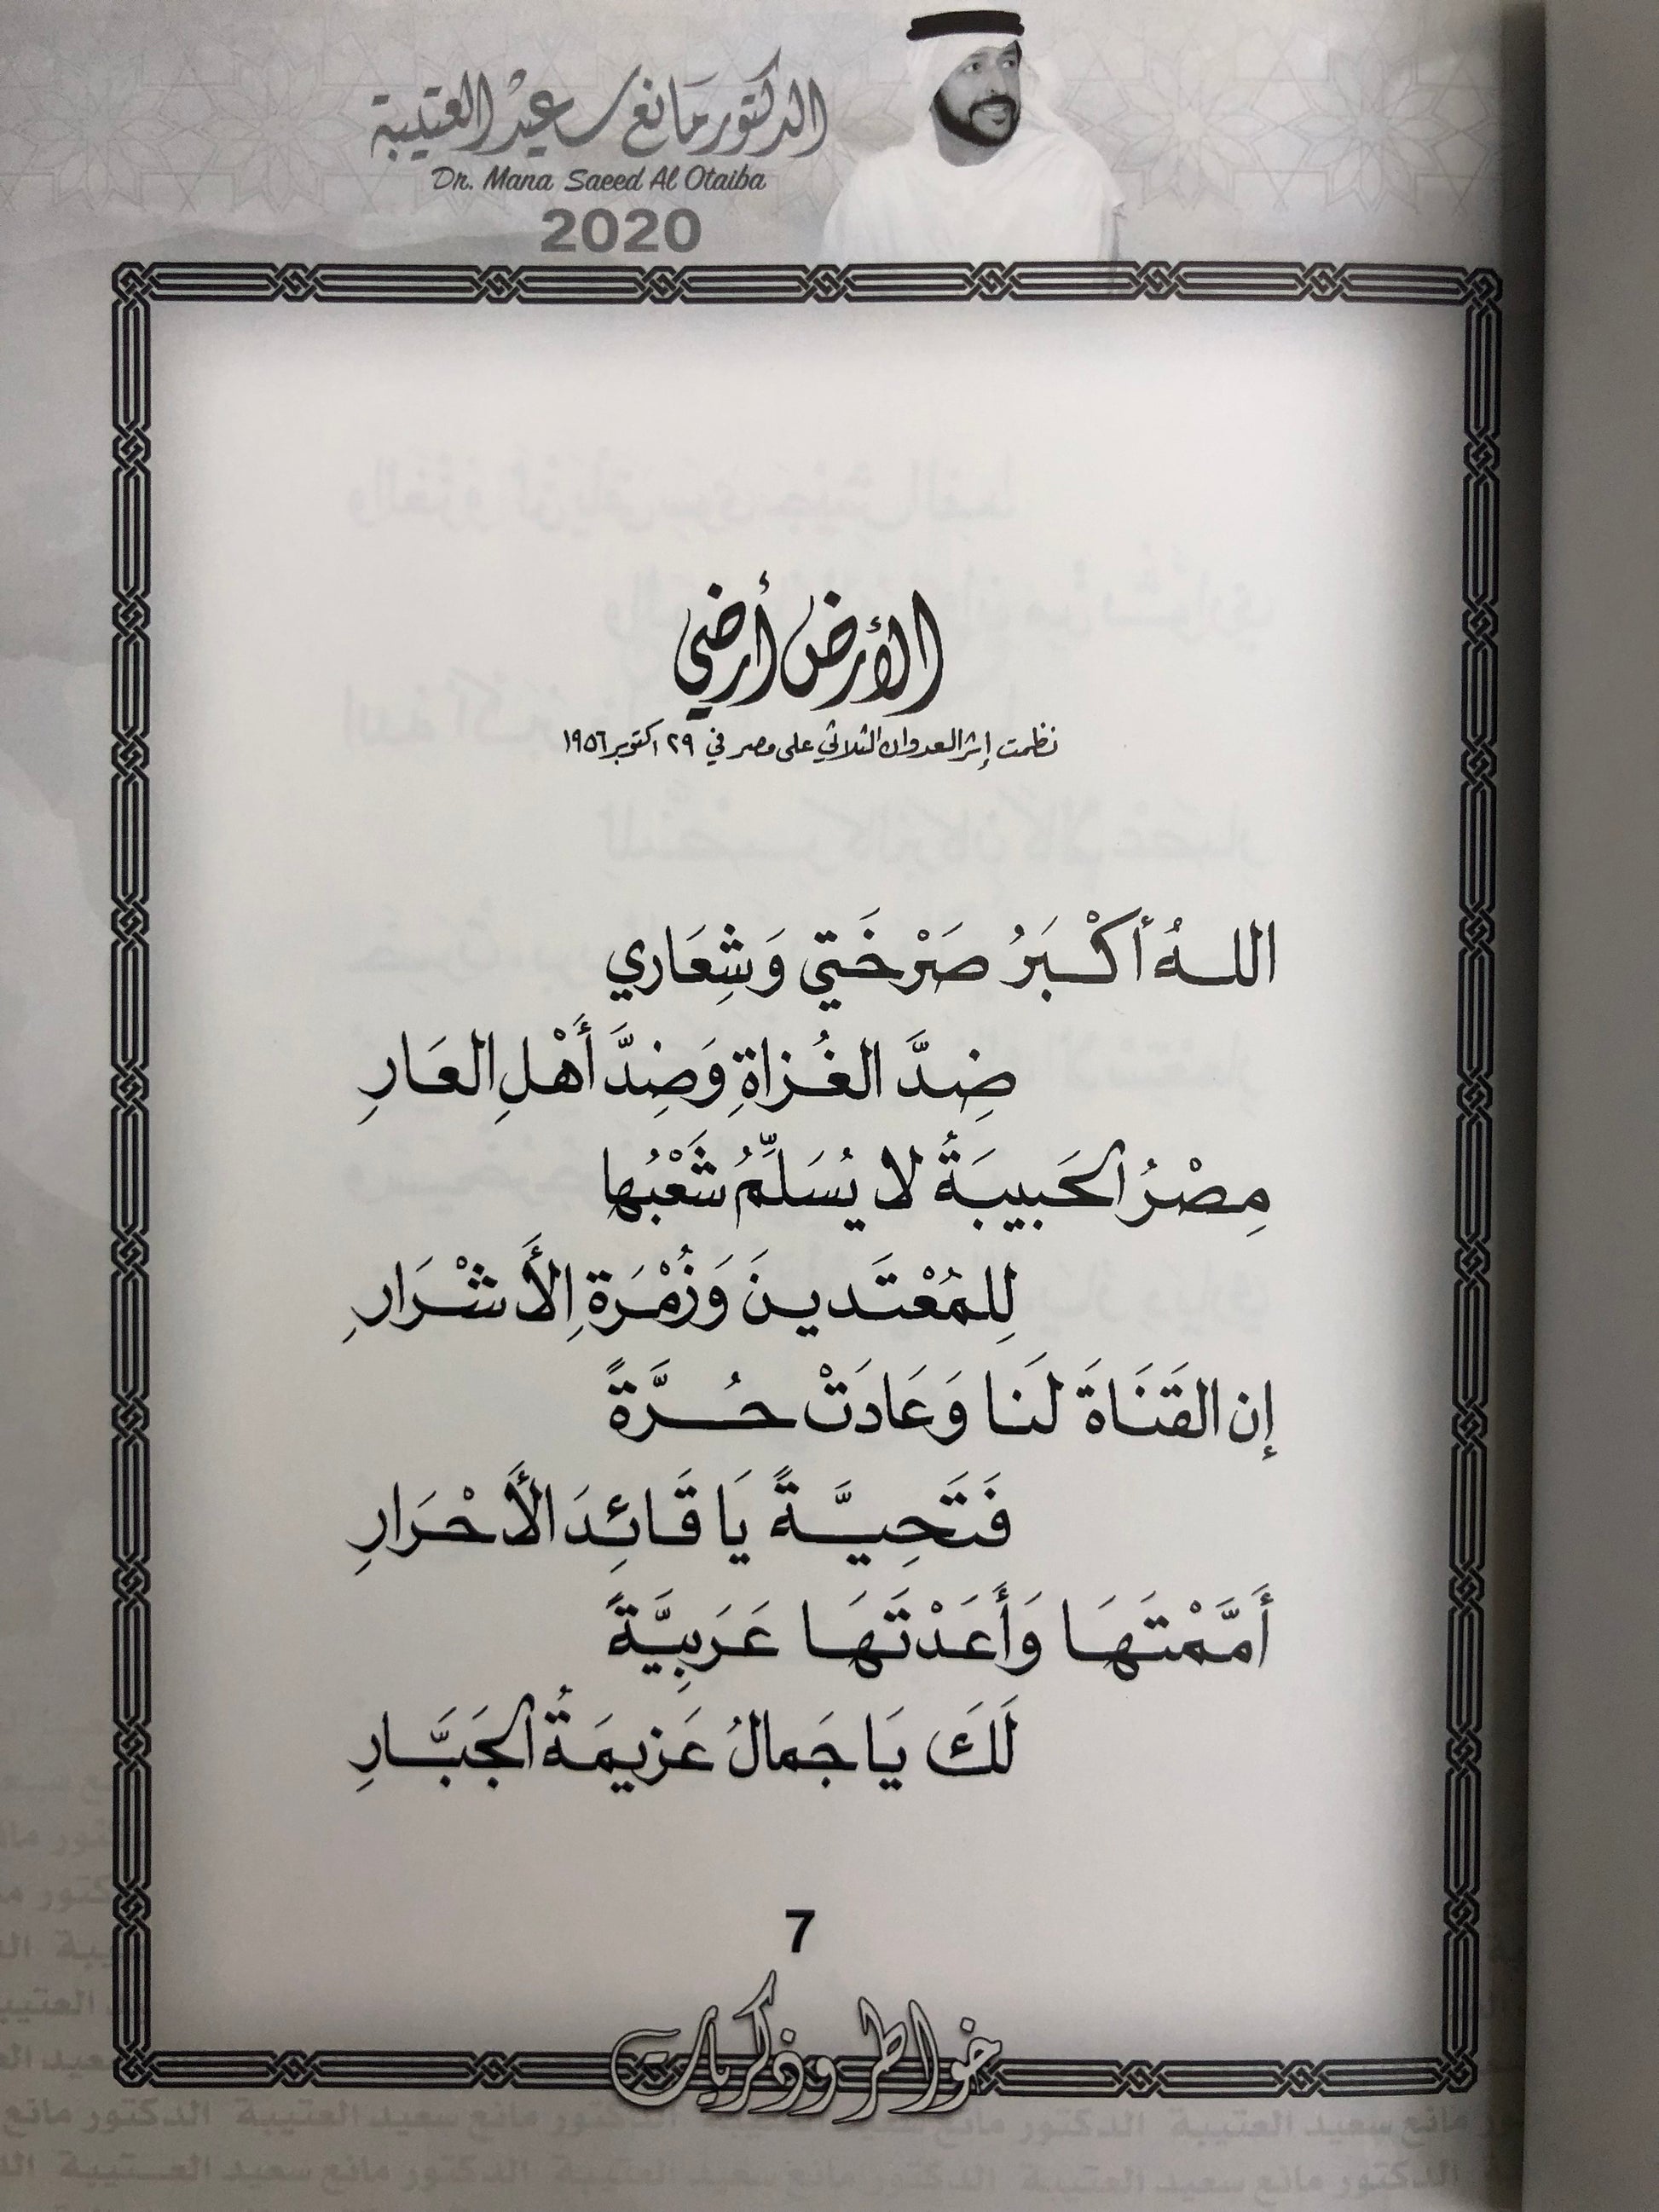 الدكتور مانع سعيد العتيبة
Dr. Mana Saeed Al Otaiba
2020
الأرض أرضي
نظمت إثر العدوان الثلاثي على مصر في ٢٩ اكتوبر ١٩٥٦
اللـهُ أكْـبَرُ صَرْخَتِي وَشِعَاري
ضِدَّ الغُـزاةِ وَضِدَّ أَهْلِ العَـارِ
مِصْرُ الحَبيبَةُ لا يُسَلِّمُ شَعْبُها
لِلمُعْتَـدينَ وَزُمْرَةِ الأَشْـرَارِ
إن القَنَاةَ لَنا وَعَادَتْ حُـرَّةً
فَتَحِيَّـةً يَا قَـائِدَ الأَحْرَارِ
أَمَّمْتَهَـا وَأَعَدْتَهَـا عَرَبِيَّةً
لَكَ يَا جَمالُ عَزيمَةُ الجَبَّـارِ
7
خواطر وذكريات
الدكتور مانع سعيد العتيبة الدكتور مانع سعيد العتيبة
الدكتور مانع سعيد العتيبة الدكتور مانع سعيد العتيبة